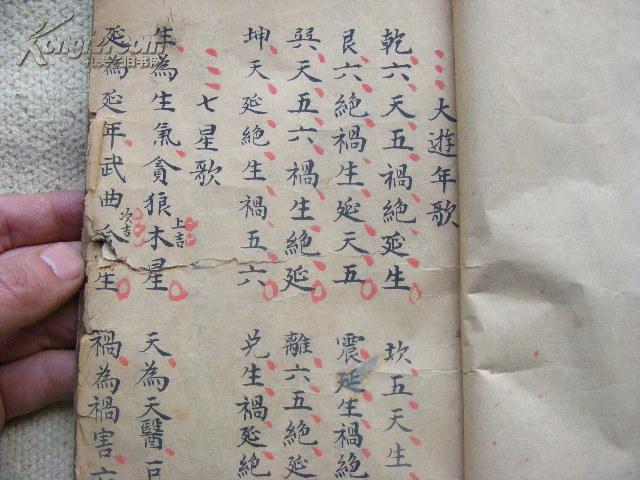 大遊年歌
乾六天五禍絕延生 坎五天生
艮六絕禍生延天五 震延生禍絕
巽天五六禍生絕延 離六五絕延
坤天延絕生禍五六 兑生禍延絕
七星歌
生為生氣貪狼木星 上吉 天為天醫
延為延年武曲 次吉 禍為禍害